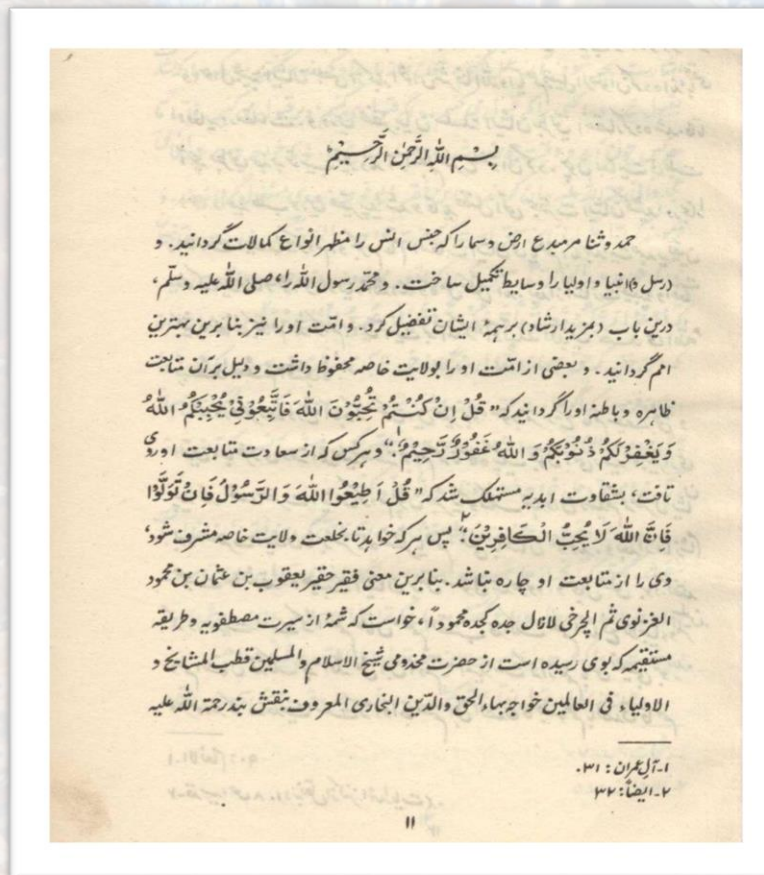 بِسْمِ اللّٰهِ الرَّحْمٰنِ الرَّحِيْمِ
حمد و ثنا مر مبدع ارض و سما را که جنس انس را مظهر انواع کمالات گردانید. و
(رسل و) انبیا و اولیا را وسایط تکمیل ساخت. و محمّد رسول اللّٰه را، صلی اللّٰه علیه وسلّم،
درین باب (بمزید ارشاد) بر همهٔ ایشان تفضیل کرد. و امّت او را نیز بنا برین بهترین
امم گردانید. و بعضی از امّت او را بولایت خاصه محفوظ داشت و دلیل بر آن متابعت
ظاهره و باطنه او را گردانید که "قُلْ اِنْ كُنْتُمْ تُحِبُّوْنَ اللّٰهَ فَاتَّبِعُوْنِيْ يُحْبِبْكُمُ اللّٰهُ
وَيَغْفِرْ لَكُمْ ذُنُوْبَكُمْ وَ اللّٰهُ غَفُوْرٌ رَّحِيْمٌ۱" و هر کس که از سعادت متابعت او روی
تافت، بشقاوت ابدیه مستهلک شد که "قُلْ اَطِيْعُوا اللّٰهَ وَ الرَّسُوْلَ فَاِنْ تَوَلَّوْا
فَاِنَّ اللّٰهَ لَا يُحِبُّ الْكَافِرِيْنَ۲" پس هر که خواهد تا بخلعت ولایت خاصه مشرف شود،
وی را از متابعت او چاره نباشد. بنا برین معنی فقیر حقیر یعقوب بن عثمان بن محمود
الغزنوی ثم الچرخی لازال جده کجده محموداً، خواست که شمهٔ از سیرت مصطفویه و طریقه
مستقیمه که بوی رسیده است از حضرت مخدومی شیخ الاسلام والمسلمین قطب المشایخ و
الاولیاء فی العالمین خواجه بهاء الحق والدّین البخاری المعروف بنقش بند رحمة اللّٰه علیه
۱- آلِ عمران: ۳۱.
۲- ایضاً: ۳۲
۱۱